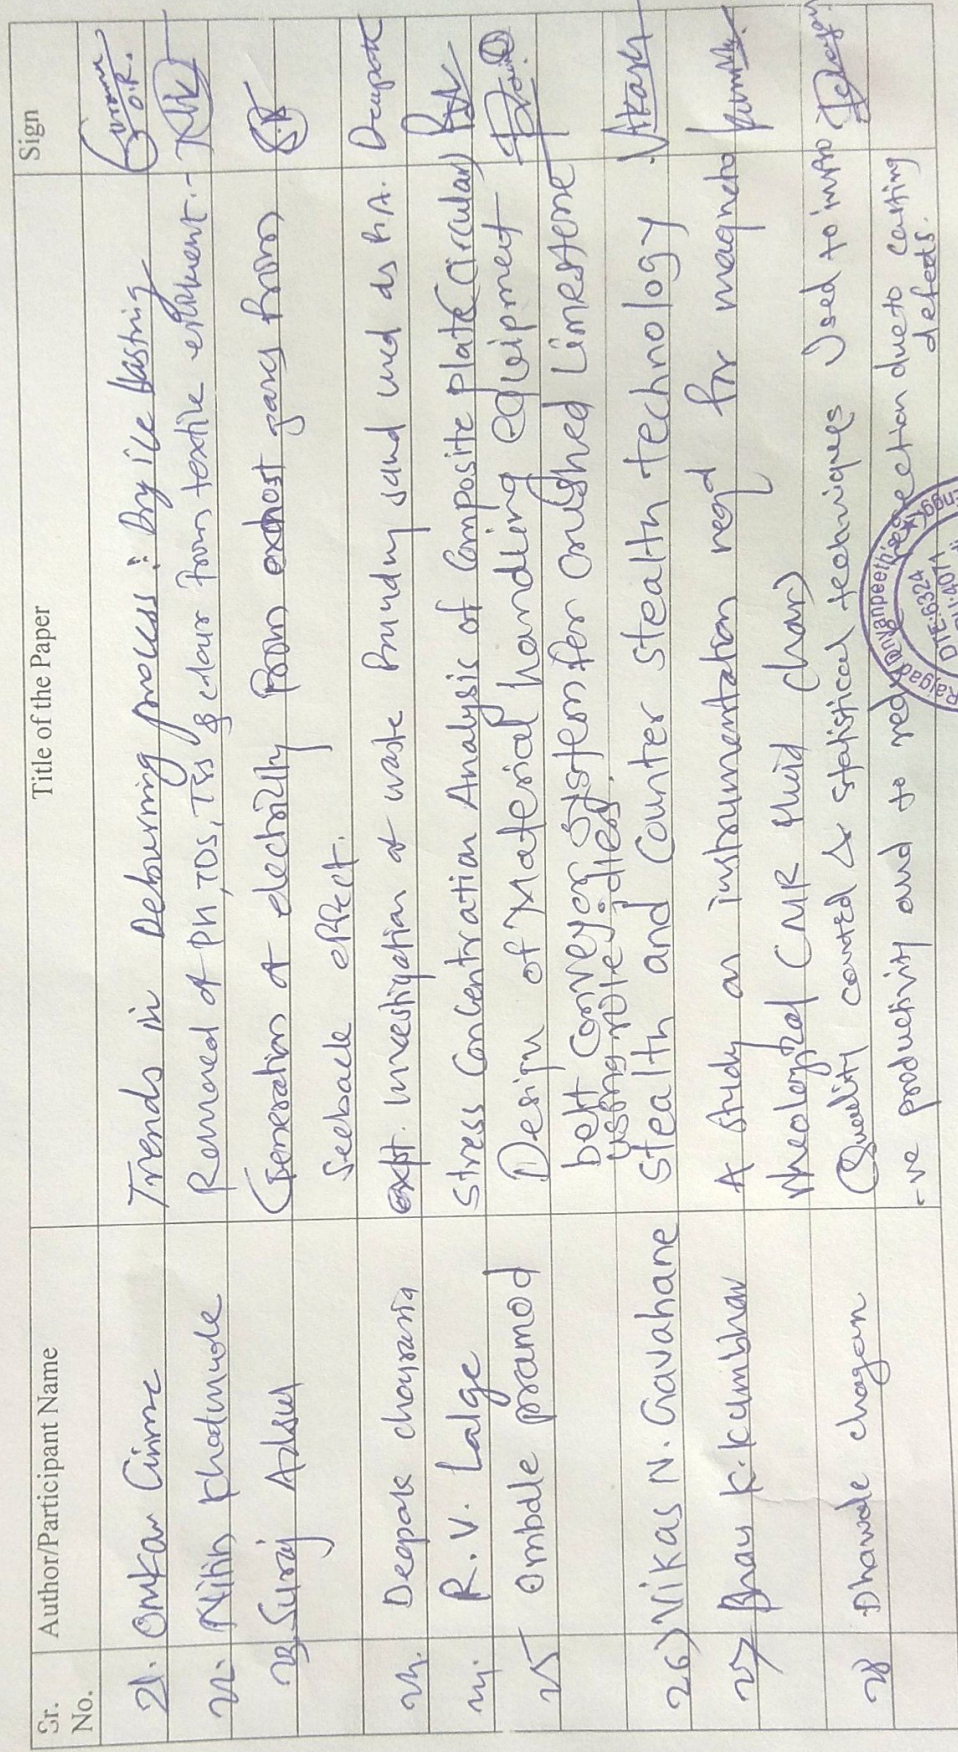 Sr. No. Author/Participant Name Title of the Paper Sign
21. Omkar Trends in Deburring process : Dry ice blasting
22. Nitin Khatmode Removed of PH, TDS, TSS & colour from textile effluent.
23. Suraj Generation of electricity from exhost gases from
Seeback effect.
24. Deepak chourasia expt. investigation of waste foundry sand used as F.A. Deepak
24. R. V. Lalge Stress Concentration Analysis of Composite plate (Circular)
25 Ombale pramod Design of Material handling equipment
belt conveyor system for crushed Limestone
using role
26) Vikas N. Gavahane stealth and Counter stealth technology. Vikash
27) Bhau K. Kumbhar A study on instrumentation reqd for magneto
rheological (MR fluid char)
28 Dhawale chagan Quality control & statistical techniques Used to impro
-ve productivity and to rejection due to casting
defects.
Rajgad Dnyanpeeth's
DTE:6324